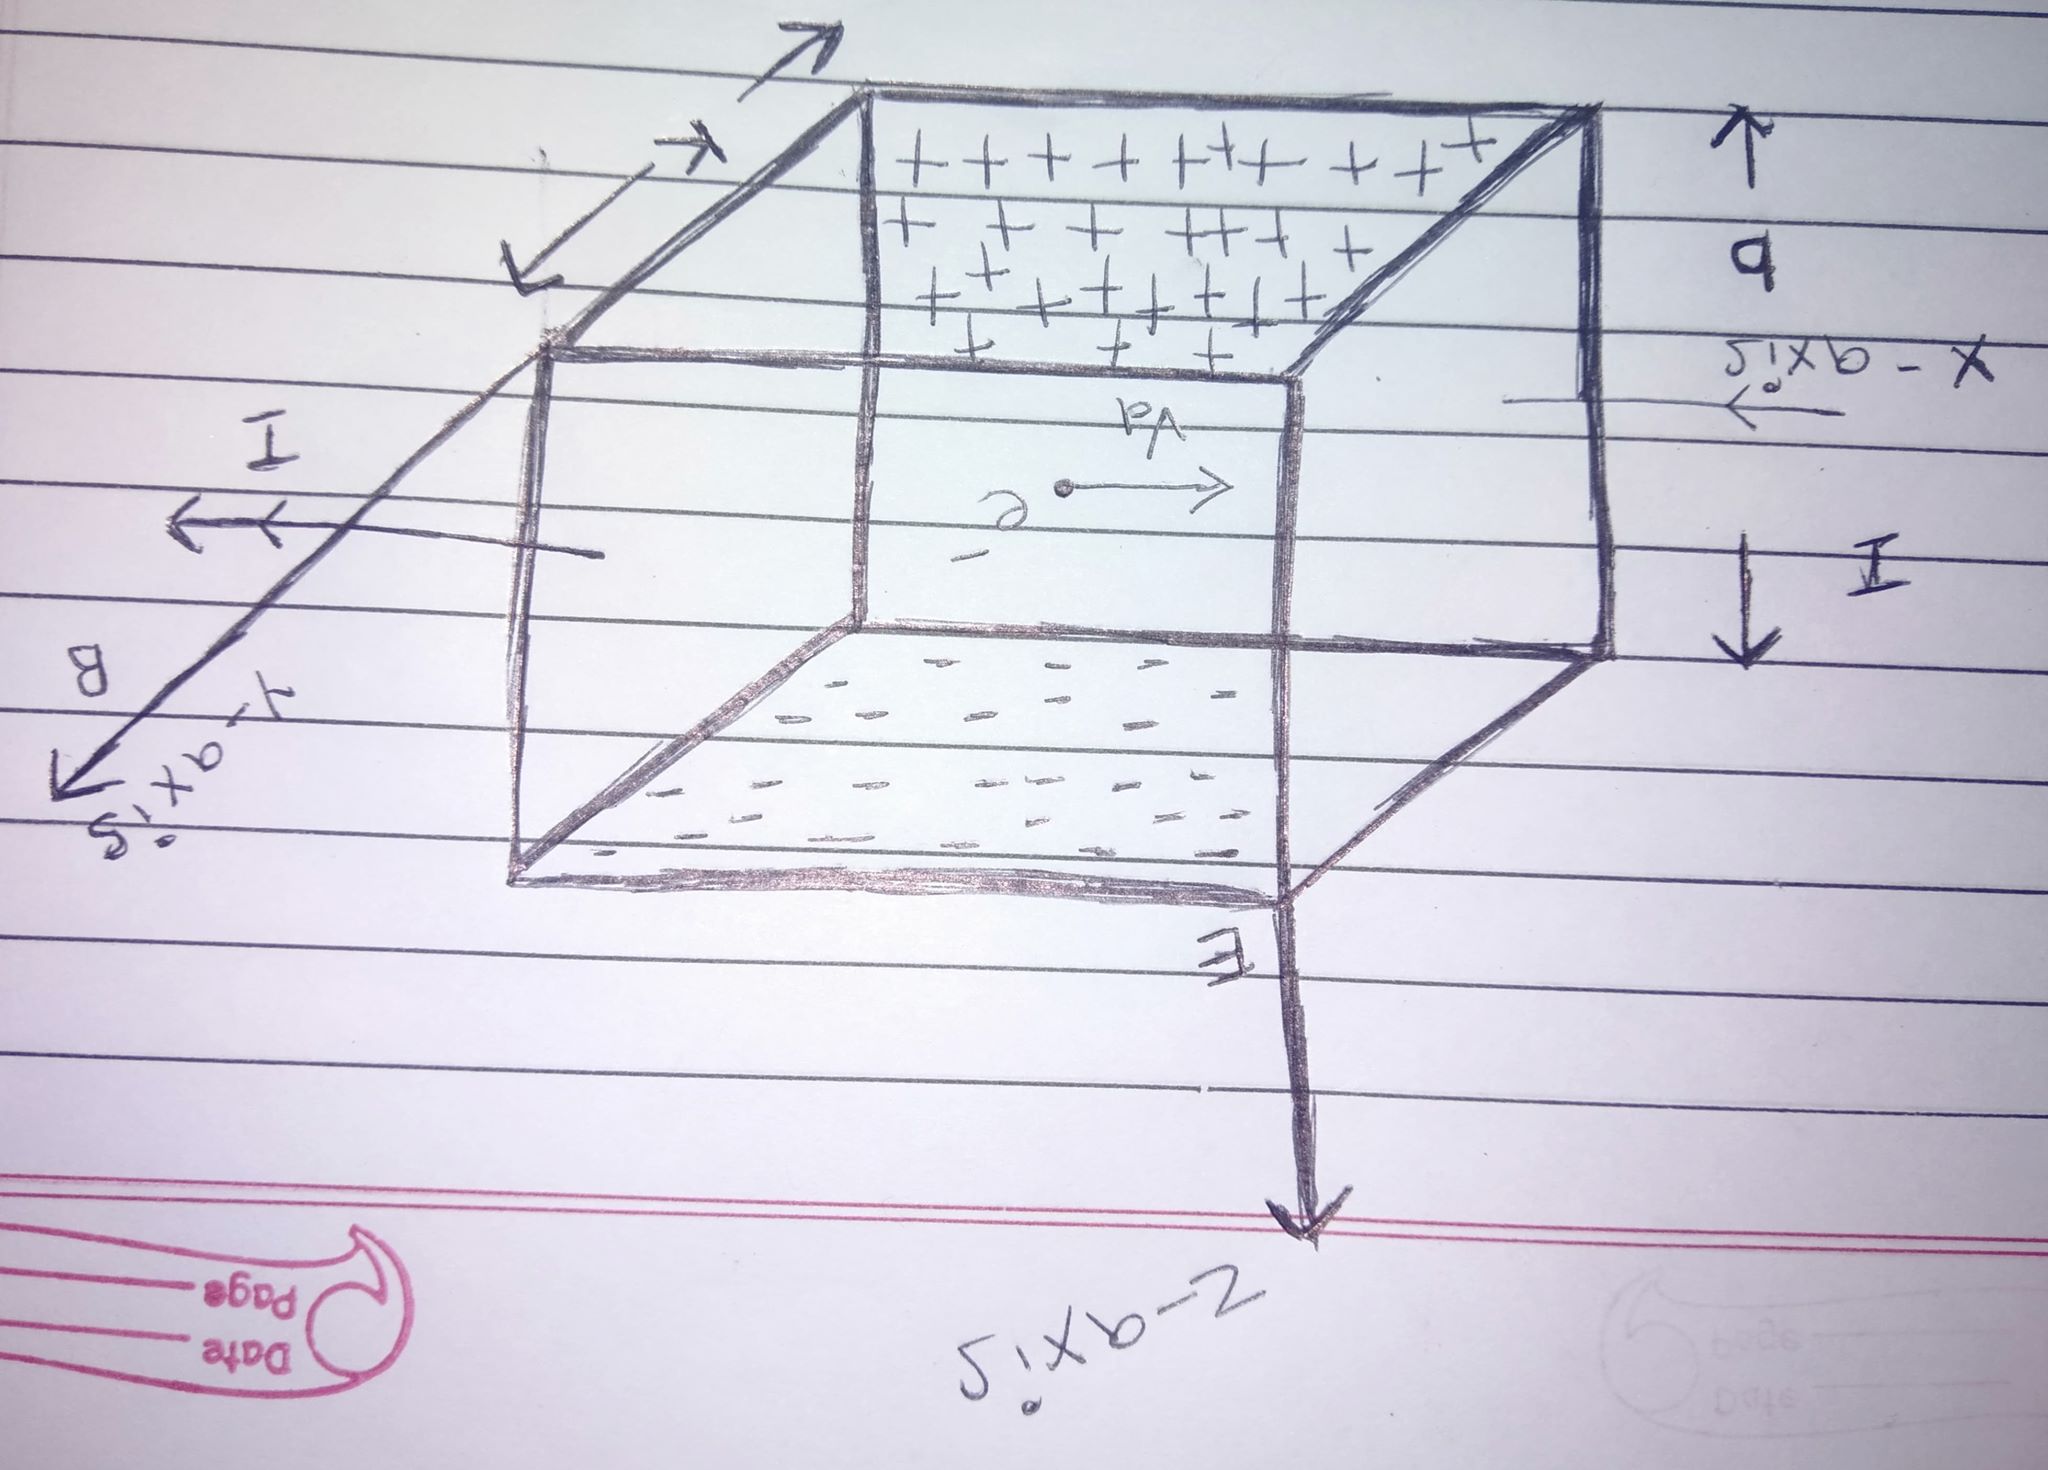 Date
Page
z-axis
E
- - - - - -
- - - - -
- - - - - - -
- - - -
- - -
- - - -
y-axis
B
I
e-
Vd
I
x-axis
b
+ + +
+ + + + + + + + +
+ + + + + + + +
+ + + + + + + + + +
K